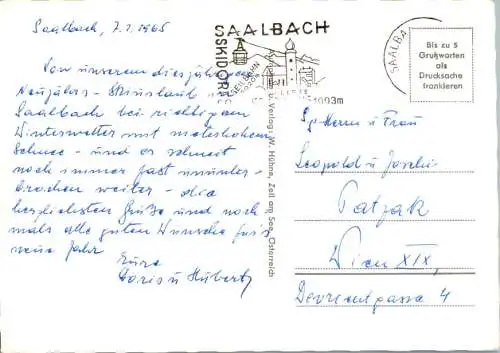 Saalbach, 7.1.1965
Von unserem diesjährigen
Neujahrs-Skiurlaub in
Saalbach bei richtigem
Winterwetter mit meterhohem
Schnee - und es schneit
noch immer fast ununter-
brochen weiter - die
herzlichsten Grüße und noch
mals alle guten Wünsche fürs
neue Jahr
Eure
Doris u Hubert
SAALBACH
SKIDORF
1003m
SAALBA
Bis zu 5
Grußworten
als
Drucksache
frankieren
u. Verlag: W. Hühne, Zell am See, Österreich
Herrn u Frau
Leopold u
Patzak
Wien XIX,
Devrientgasse 4